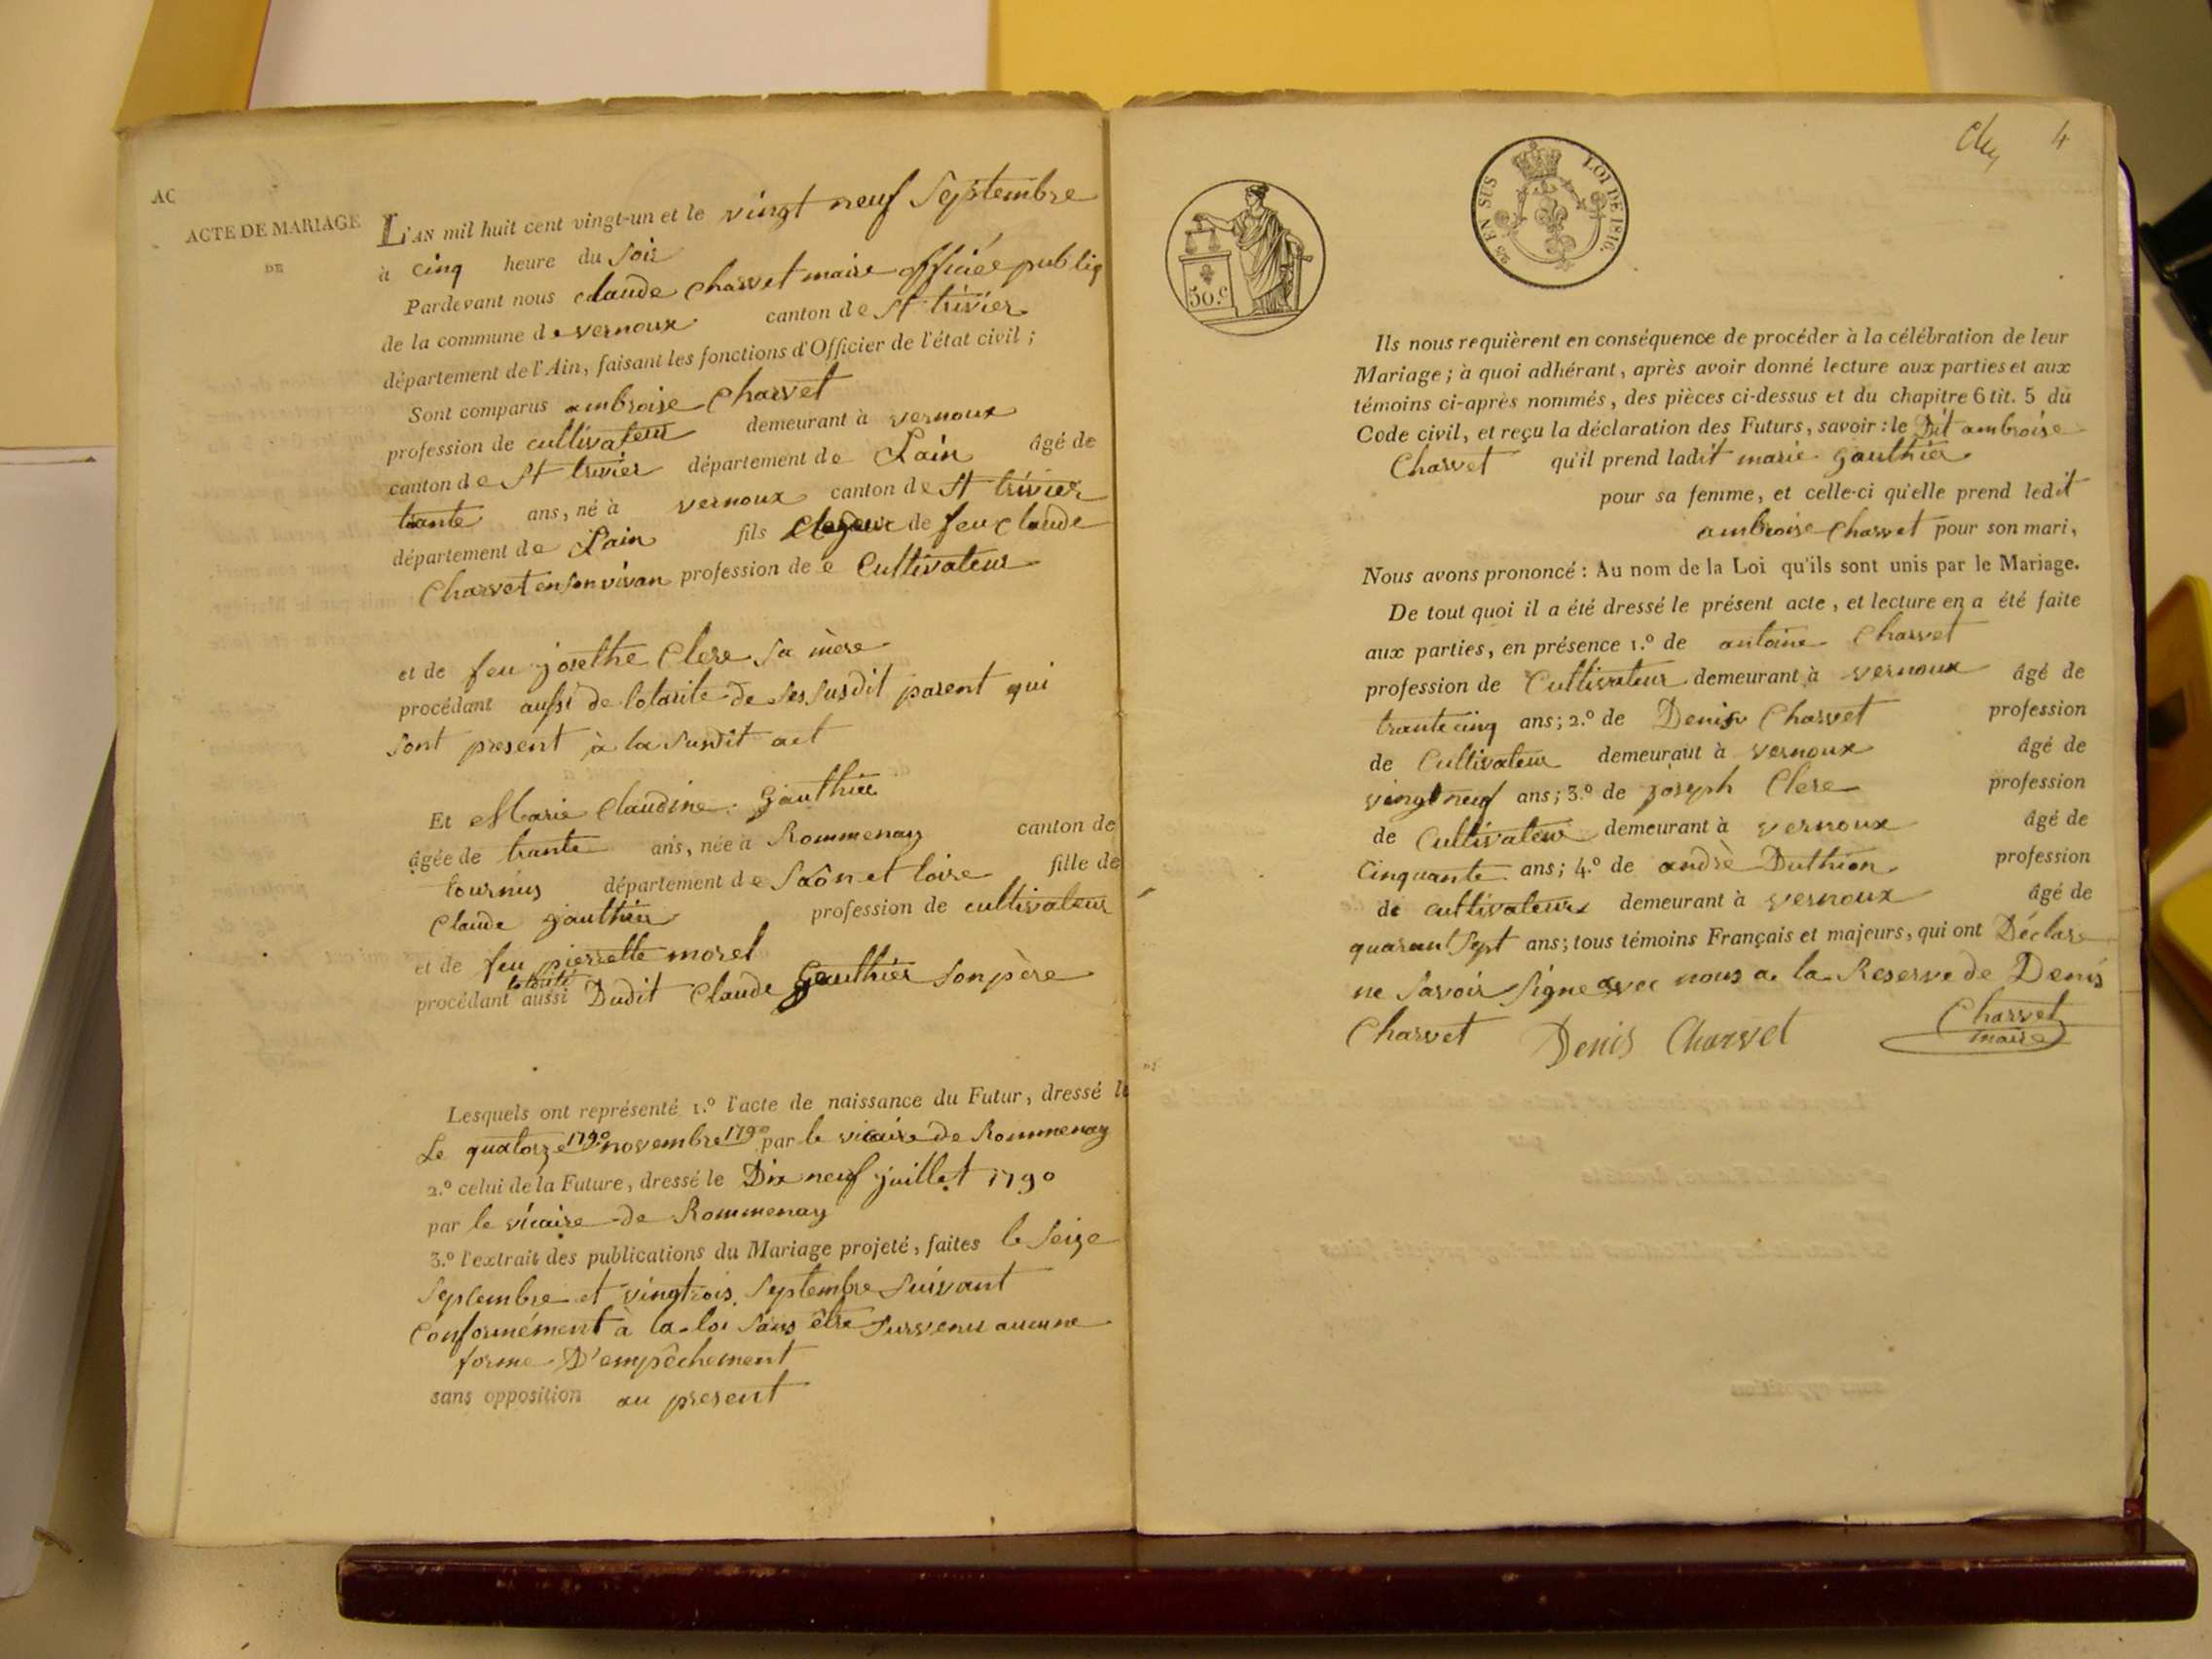 AC
ACTE DE MARIAGE
DE
L'AN mil huit cent vingt-un et le vingt neuf Septembre
à cinq heure du Soir
Pardevant nous claude Charvet maire officiée publiq
de la commune de vernoux canton de St trivier
département de l'Ain, faisant les fonctions d'Officier de l'état civil ;
Sont comparus ambroise Charvet
profession de cultivateur demeurant à vernoux
canton de St trivier département de Lain âgé de
trante ans, né à vernoux canton de St trivier
département de Lain fils de feu claude
Charvet en son vivan profession de e Cultivateur
et de feu josethe Clere Sa mère
procédant aussi de lotarite de Ses Susdit parent qui
Sont present à la Susdit act
Et Marie Claudine Gauthier
âgée de trante ans, née à Rommenay canton de
tournus département de Saôn et loire fille de
Claude gauthier profession de cultivateur
et de feu pierrette morel
lotorité
procédant aussi Dudit Claude Gauthier Son père
Lesquels ont représenté 1.º l'acte de naissance du Futur, dressé le
Le quatorze 1790 novembre 1790 par le vicaire de Rommenay
2.º celui de la Future, dressé le Dix neuf juillet 1790
par le vicaire de Rommenay
3.º l'extrait des publications du Mariage projeté, faites le Seize
Septembre et vingtrois Septembre Suivant
Conformément à la loi Sans être Survenu aucune
forme D'empêchement
sans opposition au present
4
50.c
25 EN SUS LOI DE 1816.
Ils nous requièrent en conséquence de procéder à la célébration de leur
Mariage ; à quoi adhérant, après avoir donné lecture aux parties et aux
témoins ci-après nommés, des pièces ci-dessus et du chapitre 6 tit. 5 du
Code civil, et reçu la déclaration des Futurs, savoir : le Dit ambroise
Charvet qu'il prend ladit marie gauthier
pour sa femme, et celle-ci qu'elle prend ledit
ambroise Charvet pour son mari,
Nous avons prononcé : Au nom de la Loi qu'ils sont unis par le Mariage.
De tout quoi il a été dressé le présent acte, et lecture en a été faite
aux parties, en présence 1.º de antoine Charvet
profession de Cultivateur demeurant à vernoux âgé de
trante cinq ans ; 2.º de Denis Charvet profession
de Cultivateur demeurant à vernoux âgé de
vingt neuf ans ; 3.º de joseph Clere profession
de Cultivateur demeurant à vernoux âgé de
Cinquante ans ; 4.º de andrè Duthion profession
de cultivateur demeurant à vernoux âgé de
quarant Sept ans ; tous témoins Français et majeurs, qui ont Déclare
ne Savoir Signe avec nous a la Reserve de Denis
Charvet Denis Charvet Charvet
maire